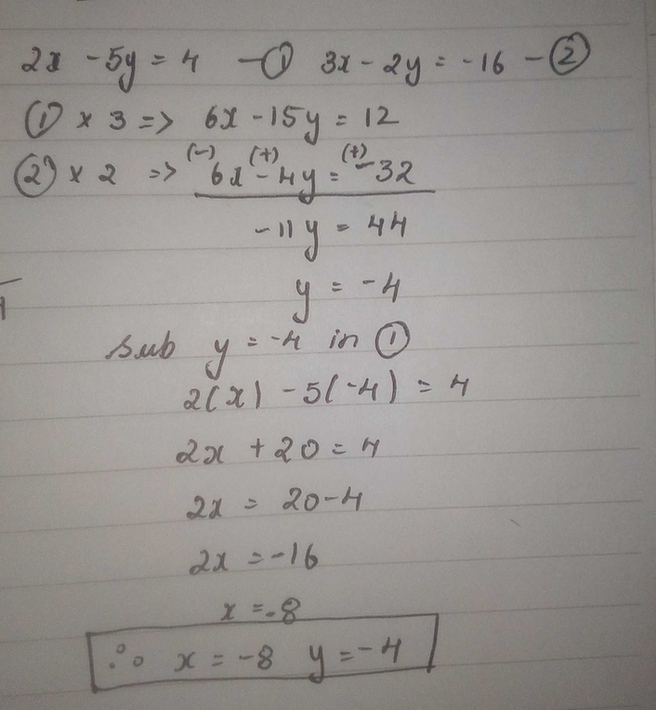 2x - 5y = 4 — ① 3x - 2y = -16 - ②
① × 3 => 6x - 15y = 12
(-) (+) (+)
② × 2 => 6x - 4y = -32
-11y = 44
y = -4
sub y = -4 in ①
2(x) - 5(-4) = 4
2x + 20 = 4
2x = 20-4
2x = -16
x = -8
∴ x = -8 y = -4